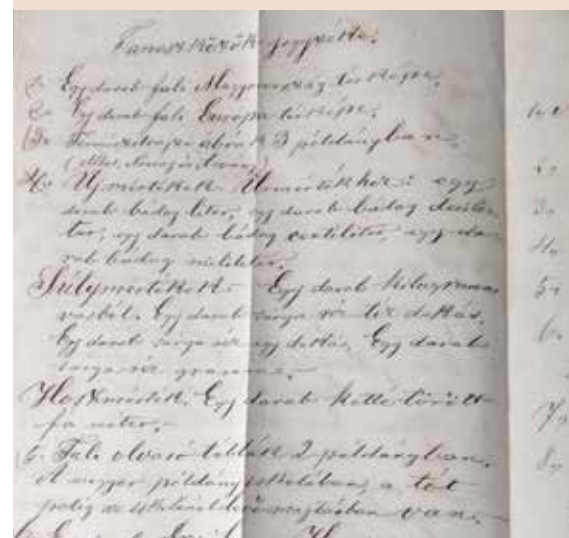 Tanszközök jegyzéke:
1. Egy darab fali Magyarország térképe,
2. Egy darab fali Európa térképe,
3. Természetrajzi ábrák 3 példányban,
4. Uj mértékek. Ürmértékhez: egy
darab bádog liter, egy darab bádog decili-
ter, egy darab bádog centiliter, egy da-
rab bádog mililiter.
Súlymértékek. Egy darab kilogramm
vasból. Egy darab sárga réz tíz dekás,
Egy darab sárga réz egy dekás, Egy darab
sárga réz gramm.
Hoszmérték. Egy darab ketté törött
fa méter.
5. Fali olvasó táblák 2 példányban.
A magyar példány iskolában, a tót
pedig az van.
1.
2.
3.
4.
5.
6.
7.
8.